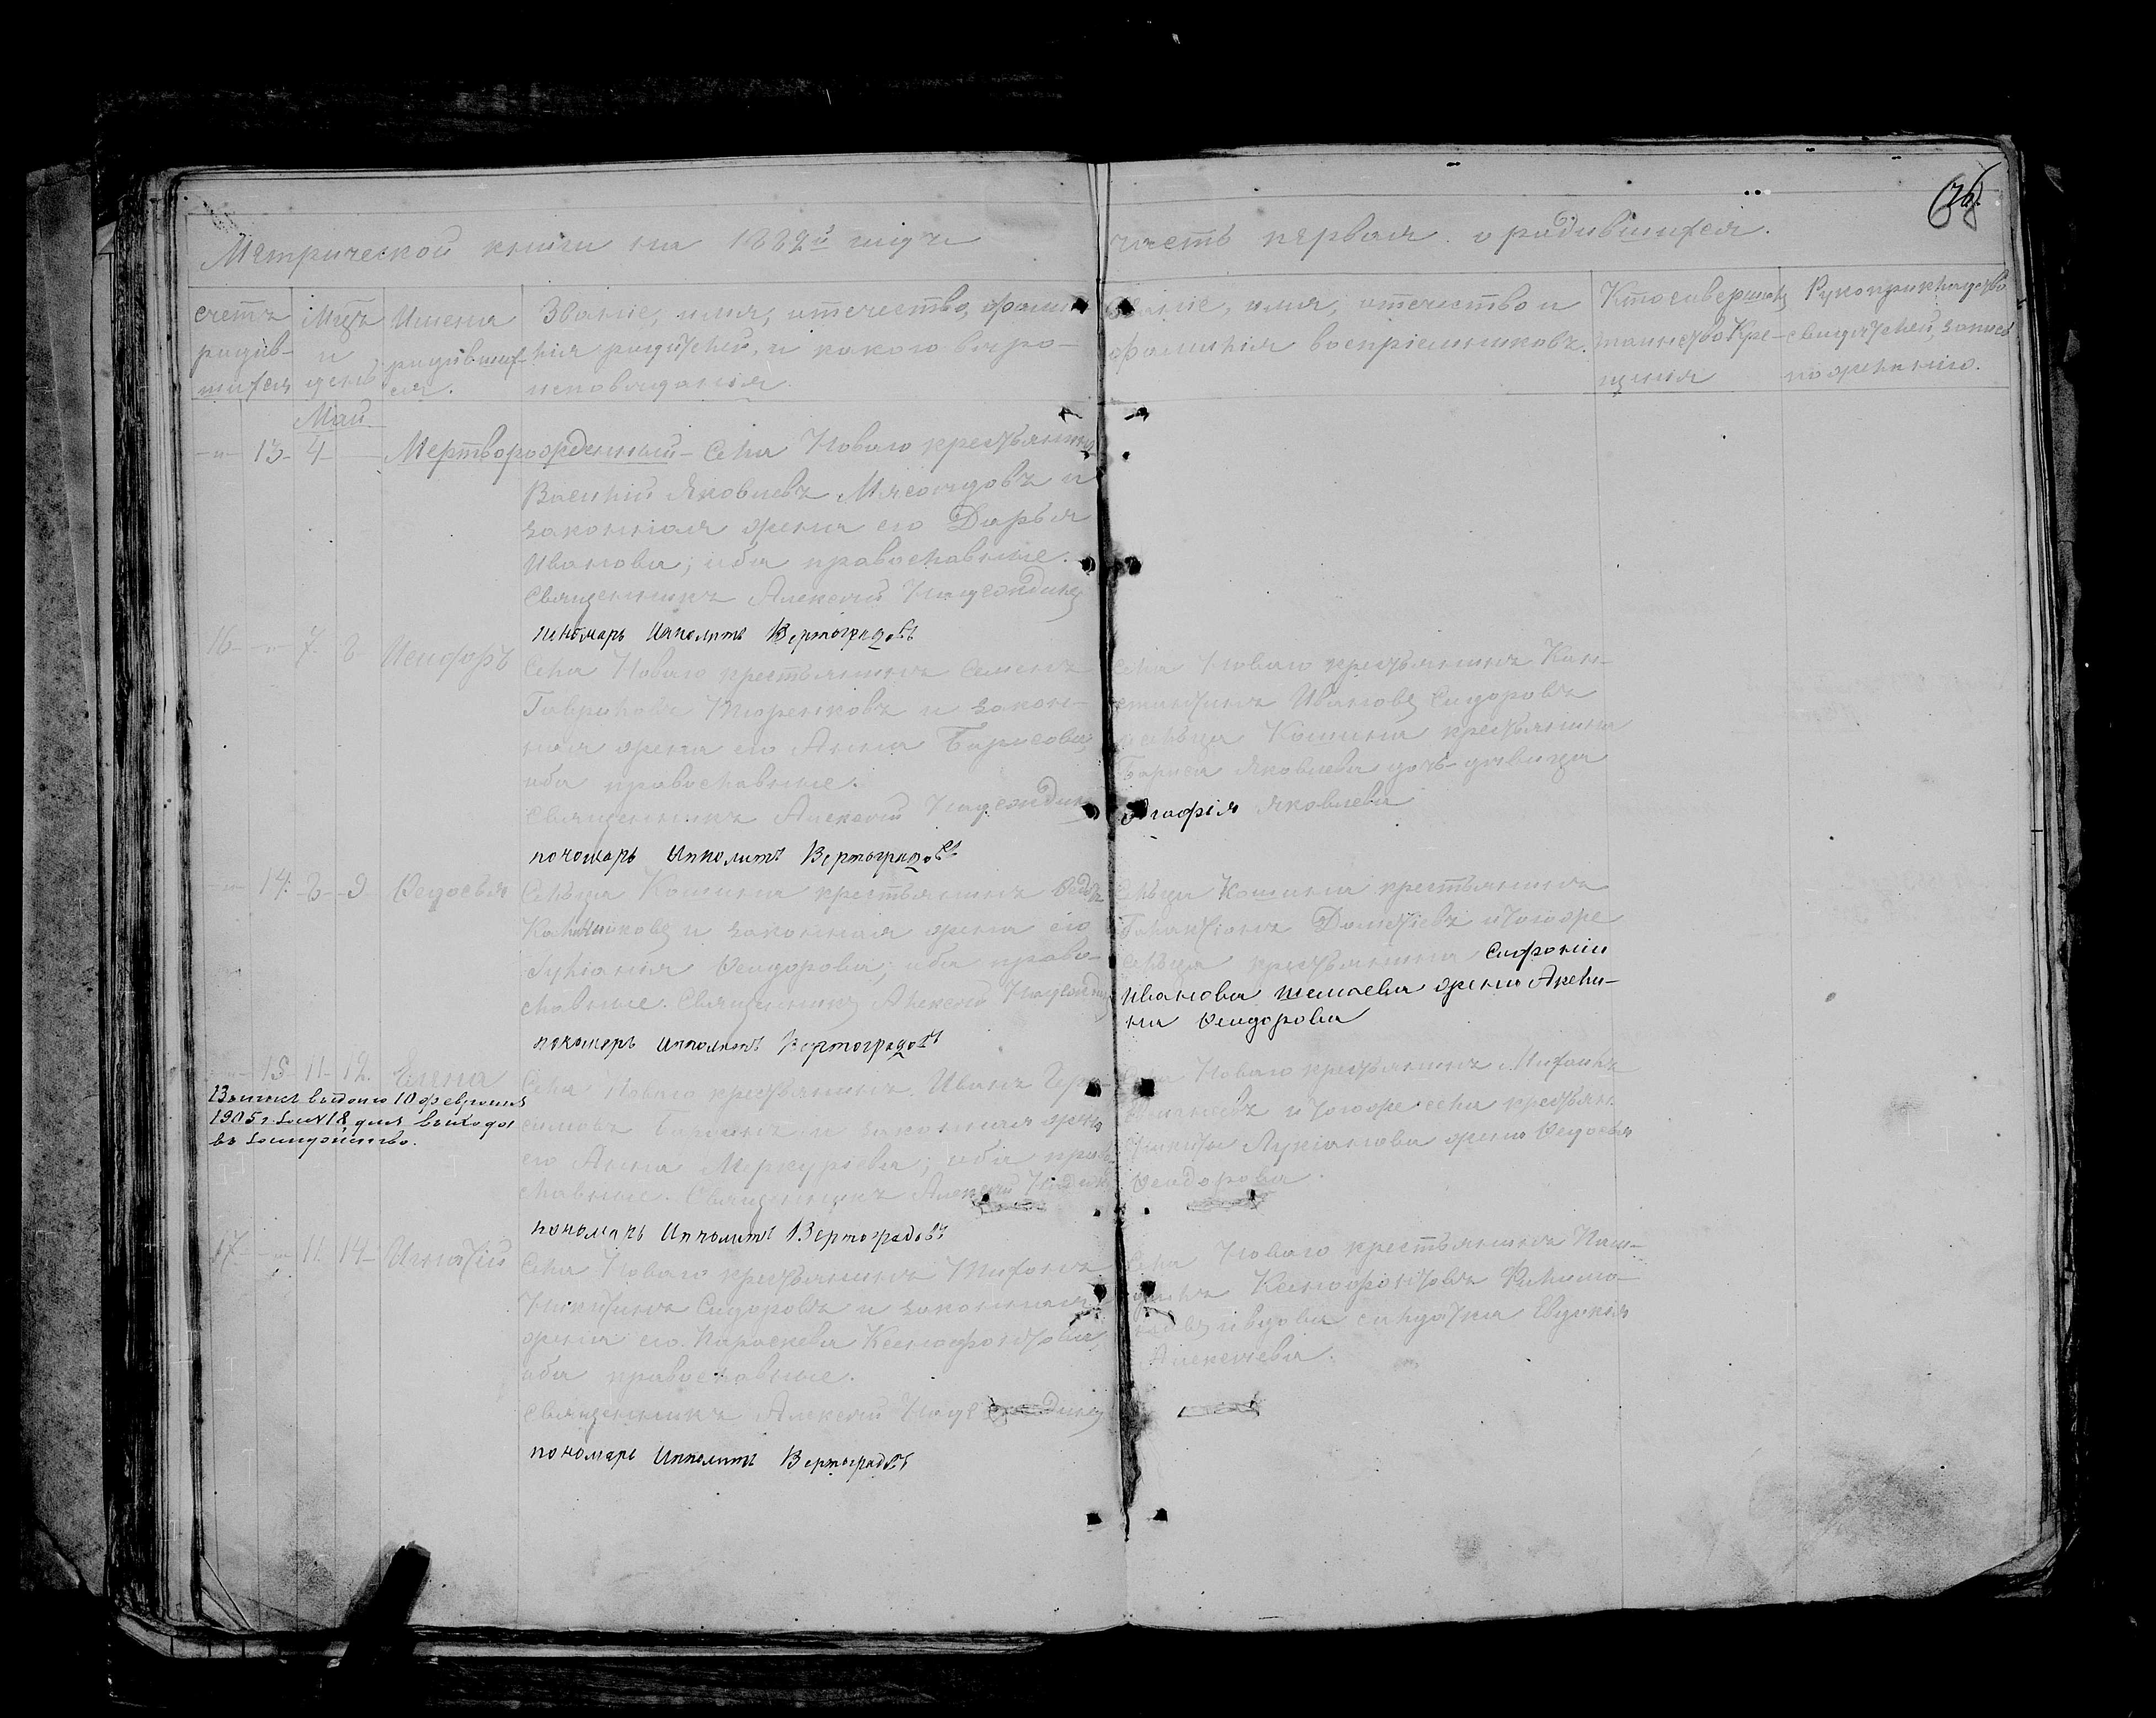 26
Метрической книги на 1882й годъ
часть первая о родившихся.
счетъ родив-шихся
Мцъ и день
Имена родившихся.
Званіе, имя, отечество, фами-
лія родителей, и какого вѣро-
исповѣданія.
Званіе, имя, отечество и
фамилія воспріемниковъ.
Кто совершалъ
таинство Кре-
щенія
Рукоприкладство
свидѣтелей записи
по желанію.
Май
13 4 Мертворожденный - Села Новаго крестьянинъ
Василій Яковлевъ Мясоѣдовъ и
законная жена его Дарья
Иванова; оба православные.
Священникъ Алексѣй
пономарь Ипполитъ Вертоградовъ
16 7 8 Исидоръ
Села Новаго крестьянинъ Семенъ
Гавриловъ Тюренковъ и закон-
ная жена его Анна Борисова,
оба православные.
Священникъ Алексѣй
пономарь Ипполитъ Вертоградовъ
Села Новаго крестьянинъ Кон-
стантинъ Ивановъ Сидоровъ
сельца Кошина крестьянина
Бориса Яковлева дочь-дѣвица
Агафія Яковлева
14 8 9 Ѳедосья
Сельца Кошина крестьянинъ
и законная жена его
Ѳеодорова; оба право-
славные. Священникъ Алексѣй
пономарь Ипполитъ Вертоградовъ
Сельца Кошина крестьянинъ
Галактіонъ и того же
сельца крестьянина Софронія
Иванова жена Акели-
на Ѳеодорова
15 11 12 Елена
Запись выдана 10 февраля
1905 г. за № 18 для выхода
въ замужество.
Села Новаго крестьянинъ Иванъ Гера-
симовъ и законная жена
его Анна Меркурьева; оба право-
славные. Священникъ Алексѣй
пономарь Ипполитъ Вертоградовъ
Села Новаго крестьянинъ
и того же села крестьян.
Никиты Лукіанова жена Ѳедосья
Ѳеодорова.
17 11 14 Игнатій
Села Новаго крестьянинъ Тихонъ
Никитинъ Сидоровъ и законная
жена его Параскева Ксенофонтова,
оба православные.
Священникъ Алексѣй
пономарь Ипполитъ Вертоградовъ
Села Новаго крестьянинъ
Ксенофонтовъ
и вдова солдатка Евдокія
Алексѣева.